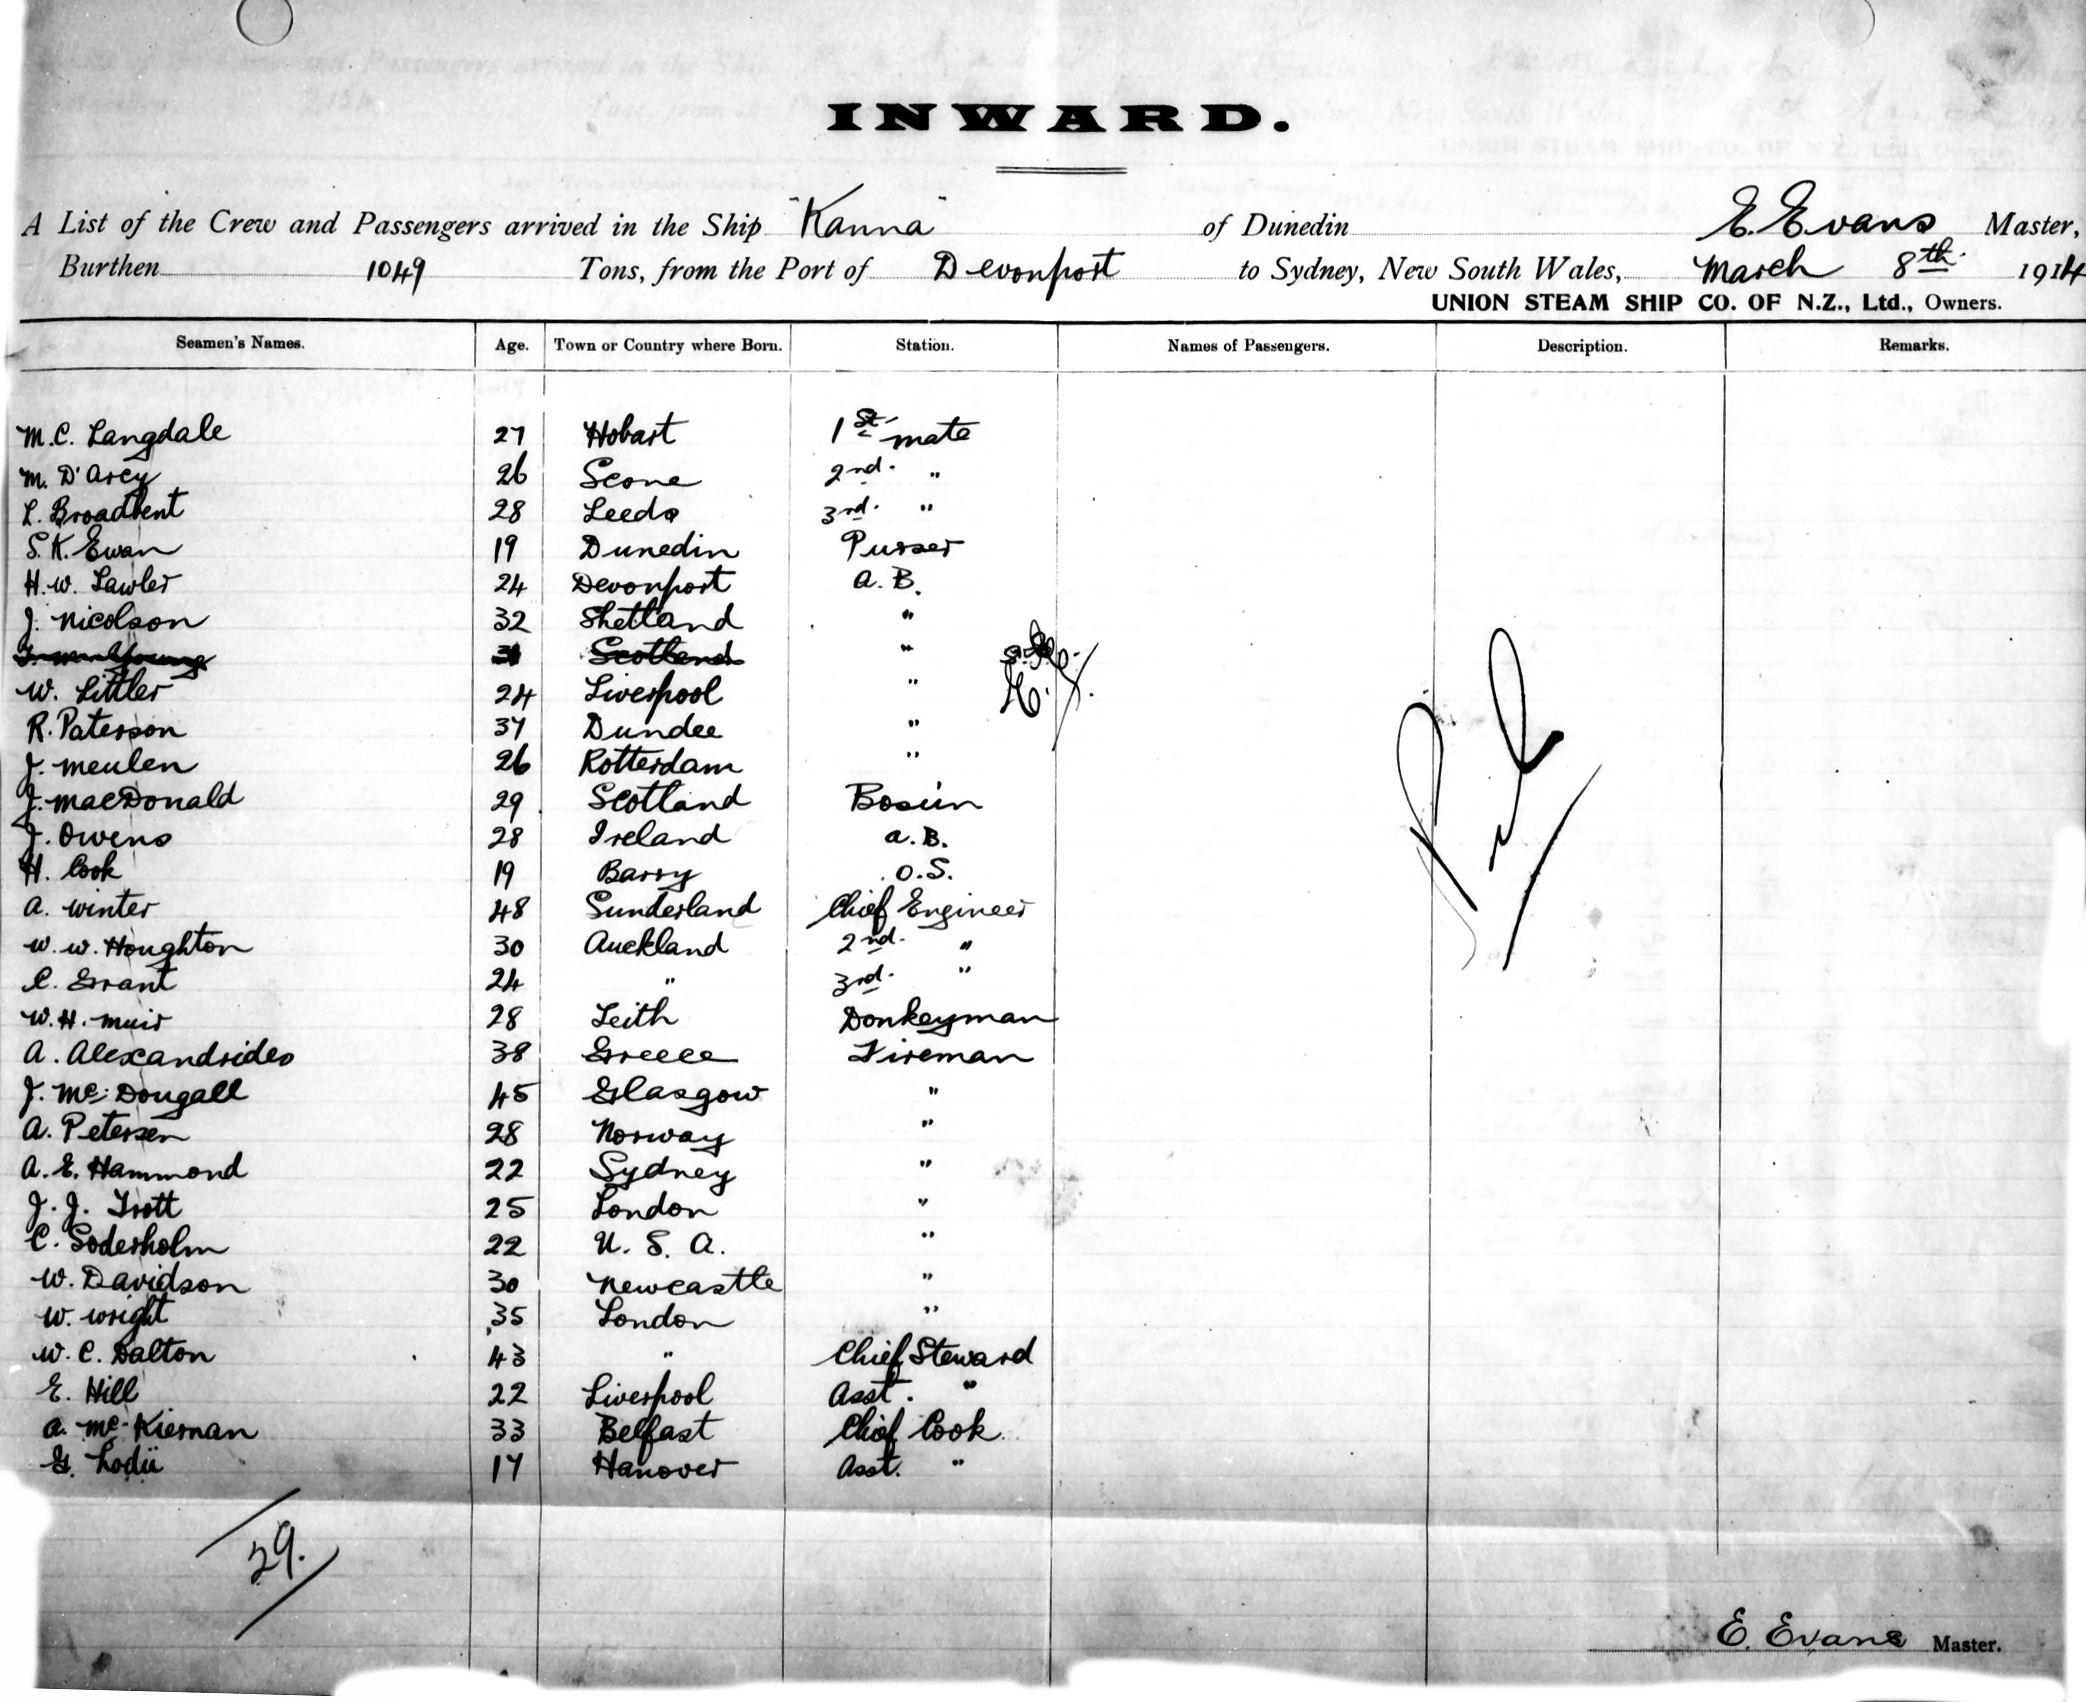 INWARD.
A List of the Crew and Passengers arrived in the Ship "Kanna" of Dunedin E. Evans Master,
Burthen 1049 Tons, from the Port of Devonport to Sydney, New South Wales, March 8th. 1914
UNION STEAM SHIP CO. OF N.Z., Ltd., Owners.
Seamen's Names. Age. Town or Country where Born. Station. Names of Passengers. Description. Remarks.
M.C. Langdale 27 Hobart 1st mate
M. D'Arcy 26 Scone 2nd. "
L. Broadbent 28 Leeds 3rd. "
S.K. Ewan 19 Dunedin Purser
H.W. Lawler 24 Devonport A.B.
J. Nicolson 32 Shetland "
Young 31 Scotland "
W. Littler 24 Liverpool "
R. Paterson 37 Dundee "
J. Meulen 26 Rotterdam "
J. MacDonald 29 Scotland Bosun
J. Owens 28 Ireland A.B.
H. Cook 19 Barry O.S.
A. Winter 48 Sunderland Chief Engineer
W.W. Houghton 30 Auckland 2nd. "
C. Grant 24 " 3rd. "
W.H. Muir 28 Leith Donkeyman
A. Alexandrides 38 Greece Fireman
J. Mc.Dougall 45 Glasgow "
A. Petersen 28 Norway "
A.E. Hammond 22 Sydney "
J.J. Trott 25 London "
C. Soderholm 22 U.S.A. "
W. Davidson 30 Newcastle "
W. Wright 35 London "
W.C. Dalton 43 " Chief Steward
E. Hill 22 Liverpool Asst. "
A. Mc.Kiernan 33 Belfast Chief Cook
G. Lodü 17 Hanover Asst. "
29.
E. Evans Master.